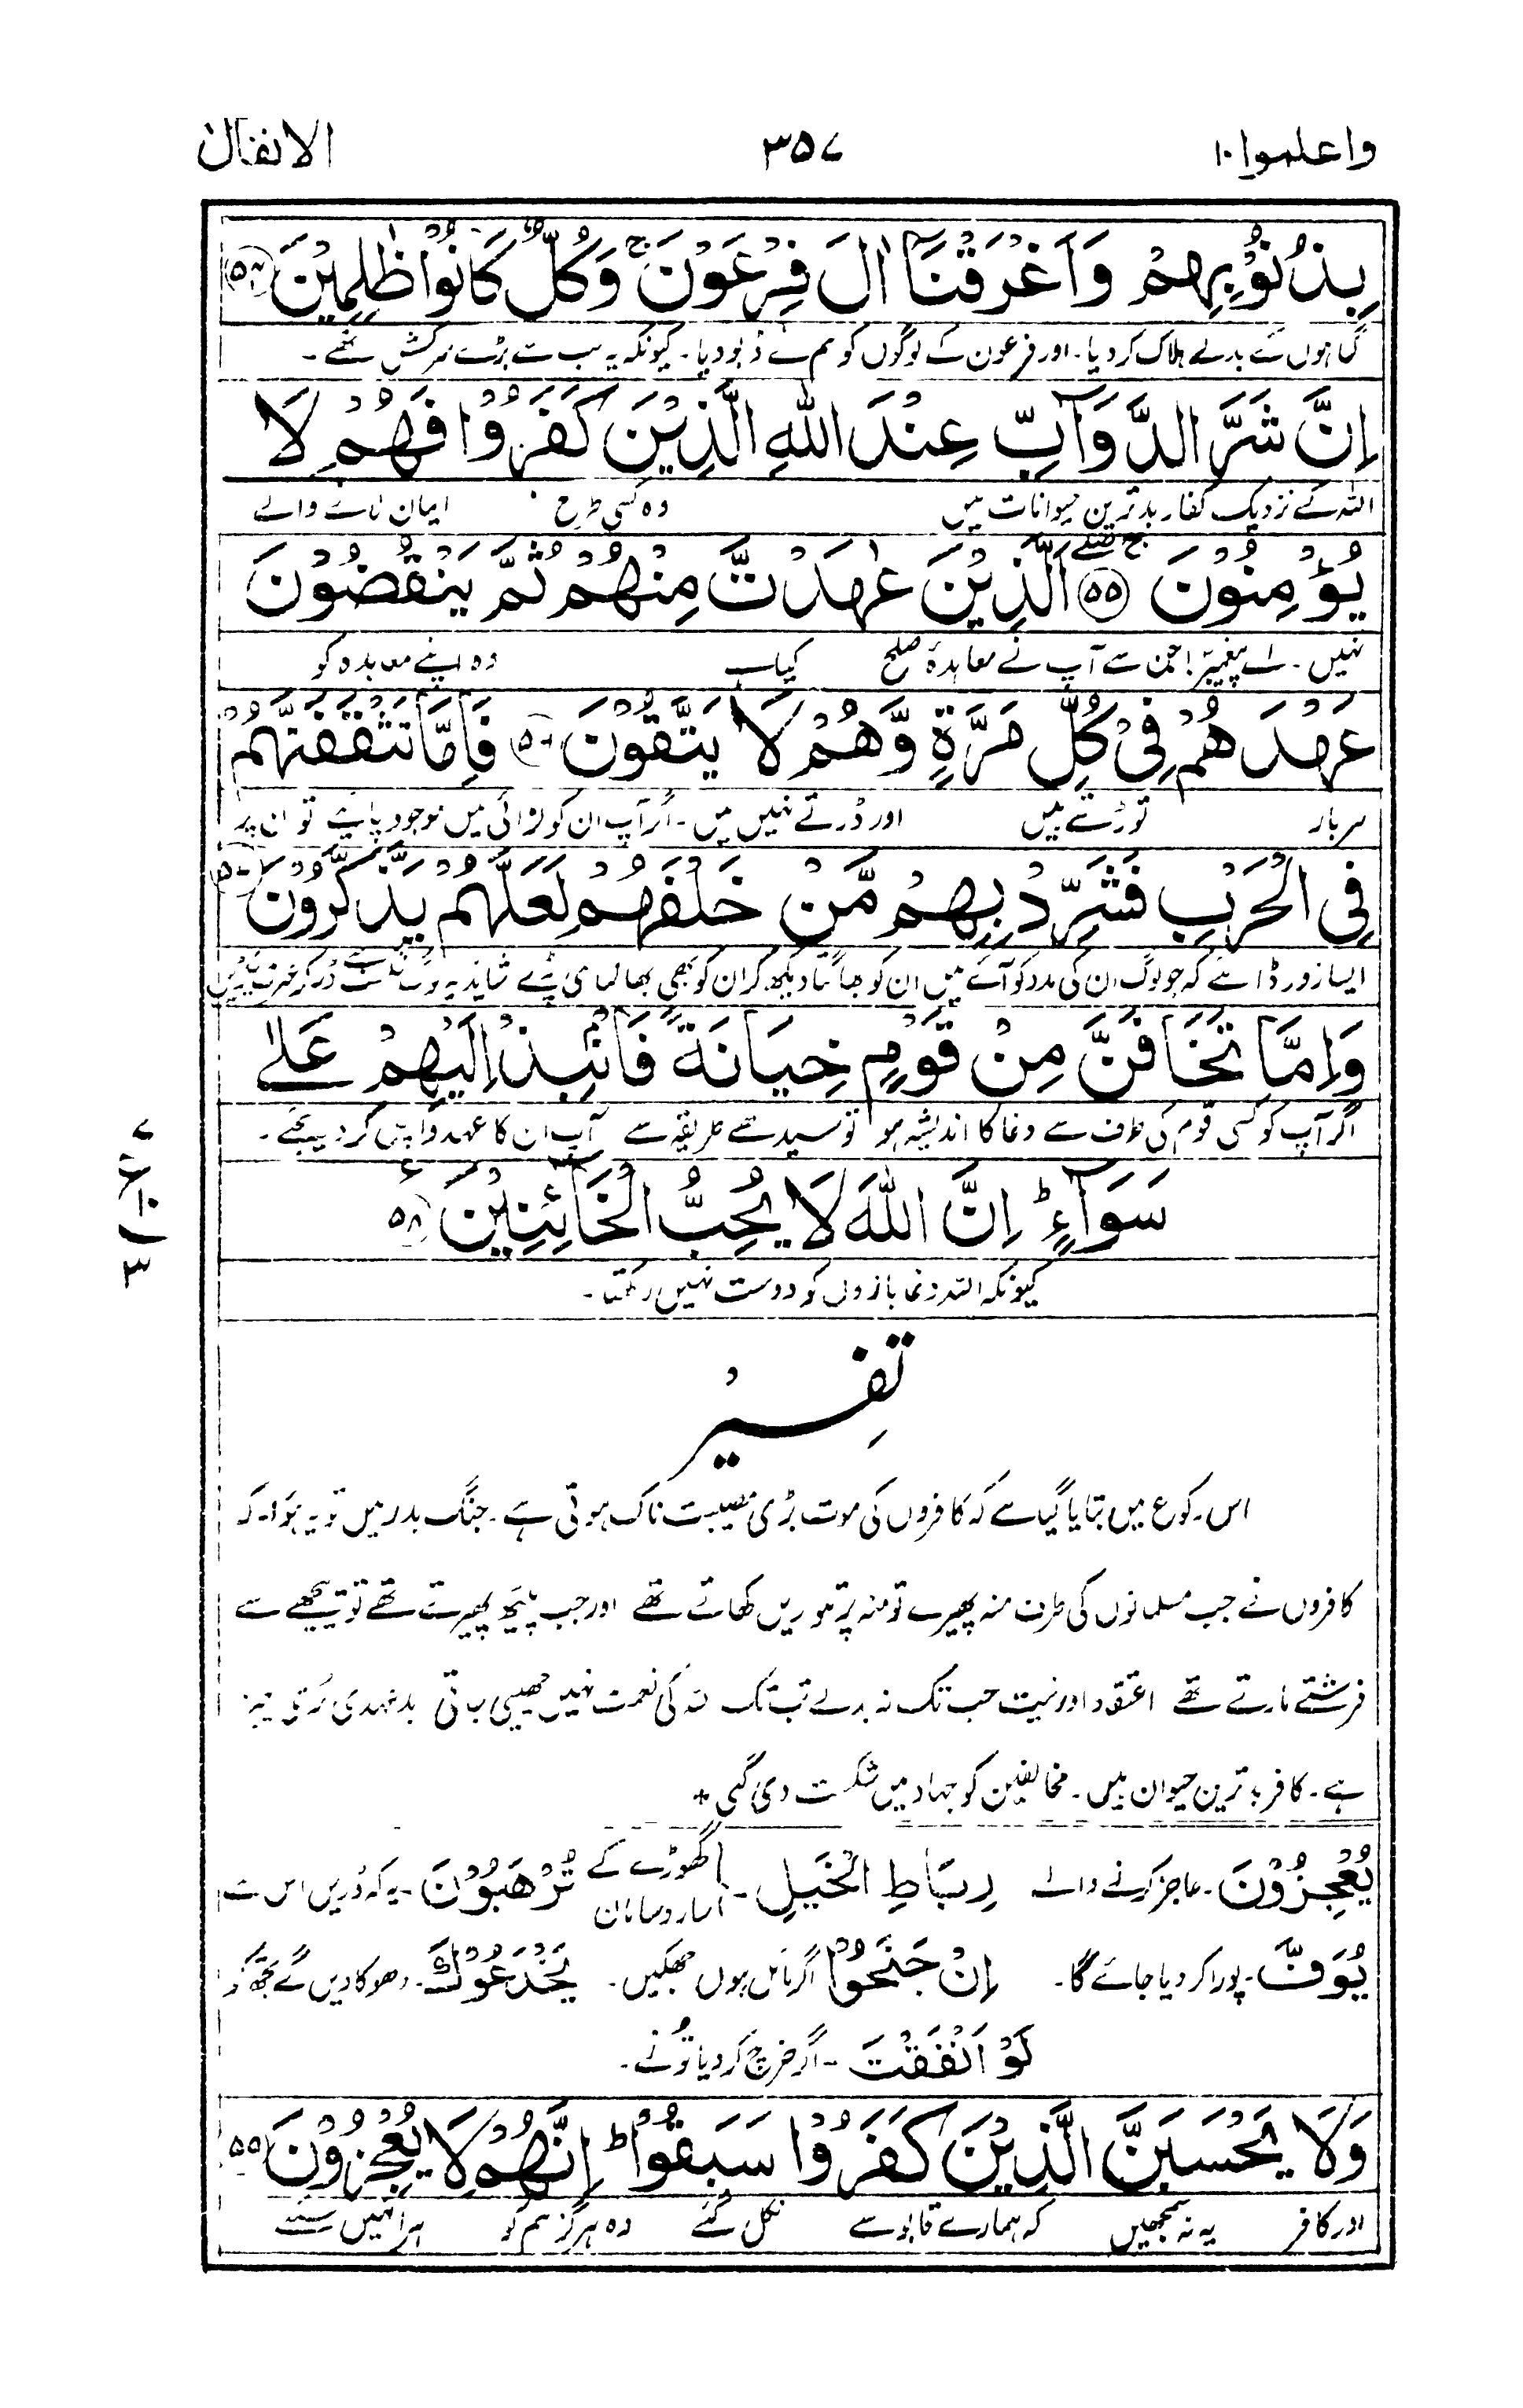 واعلموا ۱۰
۳۵۷
الانفال
بِذُنُوْبِهِمْ وَاَغْرَقْنَآ اٰلَ فِرْعَوْنَ ۚ وَكُلٌّ كَانُوْا ظٰلِمِيْنَ
گناہوں کے بدلے ہلاک کر دیا۔ اور فرعون کے لوگوں کو ہم نے ڈبو دیا۔ کیونکہ یہ سب کے بڑے سرکش تھے۔
اِنَّ شَرَّ الدَّوَآبِّ عِنْدَ اللّٰهِ الَّذِيْنَ كَفَرُوْا فَهُمْ لَا
اللہ کے نزدیک کفار بدترین حیوانات ہیں وہ کسی طرح ایمان لانے والے
يُؤْمِنُوْنَ ﴿۵۵﴾ اَلَّذِيْنَ عٰهَدْتَّ مِنْهُمْ ثُمَّ يَنْقُضُوْنَ
نہیں۔ اے پیغمبر! جن سے آپ نے معاہدۂ صلح کیا ہے وہ اپنے معاہدہ کو
عَهْدَهُمْ فِيْ كُلِّ مَرَّةٍ وَّهُمْ لَا يَتَّقُوْنَ فَاِمَّا تَثْقَفَنَّهُمْ
ہر بار توڑتے ہیں اور ڈرتے نہیں ہیں۔ اگر آپ ان کو لڑائی میں موجود پائیے تو ان پر
فِي الْحَرْبِ فَشَرِّدْ بِهِمْ مَّنْ خَلْفَهُمْ لَعَلَّهُمْ يَذَّكَّرُوْنَ
ایسا زور ڈالئے کہ جو لوگ ان کی مدد کو آئے ہیں ان کو بھاگتا دیکھ کر ان کو بھی بھاگنا ہی پڑے شاید یہ لوگ
وَاِمَّا تَخَافَنَّ مِنْ قَوْمٍ خِيَانَةً فَانْۢبِذْ اِلَيْهِمْ عَلٰى
اگر آپ کو کسی قوم کی طرف سے دغا کا اندیشہ ہو تو سیدھے طریقہ سے آپ ان کا عہد واپس کر دیجئے۔
سَوَآءٍ ؕ اِنَّ اللّٰهَ لَا يُحِبُّ الْخَآئِنِيْنَ ﴿۵۸﴾
کیونکہ اللہ دغا بازوں کو دوست نہیں رکھتا۔
تفسیر
اس رکوع میں بتایا گیا ہے کہ کافروں کی موت بڑی مصیبت ناک ہوتی ہے۔ جنگ بدر میں تو یہ ہوا۔ کہ
کافروں نے جب مسلمانوں کی طرف منہ پھیرے تو منہ پر تلواریں کھاتے تھے اور جب پیٹھ پھیرتے تھے تو پیچھے سے
فرشتے مارتے تھے اعتقاد اور نیت جب تک نہ بدلے تب تک اللہ کی نعمت نہیں چھینی جاتی بدعہدی بُری چیز
ہے۔ کافر بدترین حیوان ہیں۔ مخالفین کو جہاد میں شکست دی گئی +
يُعْجِزُوْنَ۔ عاجز کرنے والے رِبَاطِ الْخَيْلِ۔ گھوڑے کے ساز و سامان تُرْهِبُوْنَ۔ یہ کہ ڈریں اس سے
يُوَفَّ۔ پورا کر دیا جائے گا۔ اِنْ جَنَحُوْا اگر مائل ہوں جھکیں۔ يَخْدَعُوْكَ۔ دھوکا دیں گے تجھ کو
لَوْ اَنْفَقْتَ۔ اگر خرچ کر دیا تُو نے۔
وَلَا يَحْسَبَنَّ الَّذِيْنَ كَفَرُوْا سَبَقُوْا ؕ اِنَّهُمْ لَا يُعْجِزُوْنَ
اور کافر یہ نہ سمجھیں کہ ہمارے قابو سے نکل گئے وہ ہرگز ہم کو ہرا نہیں سکتے